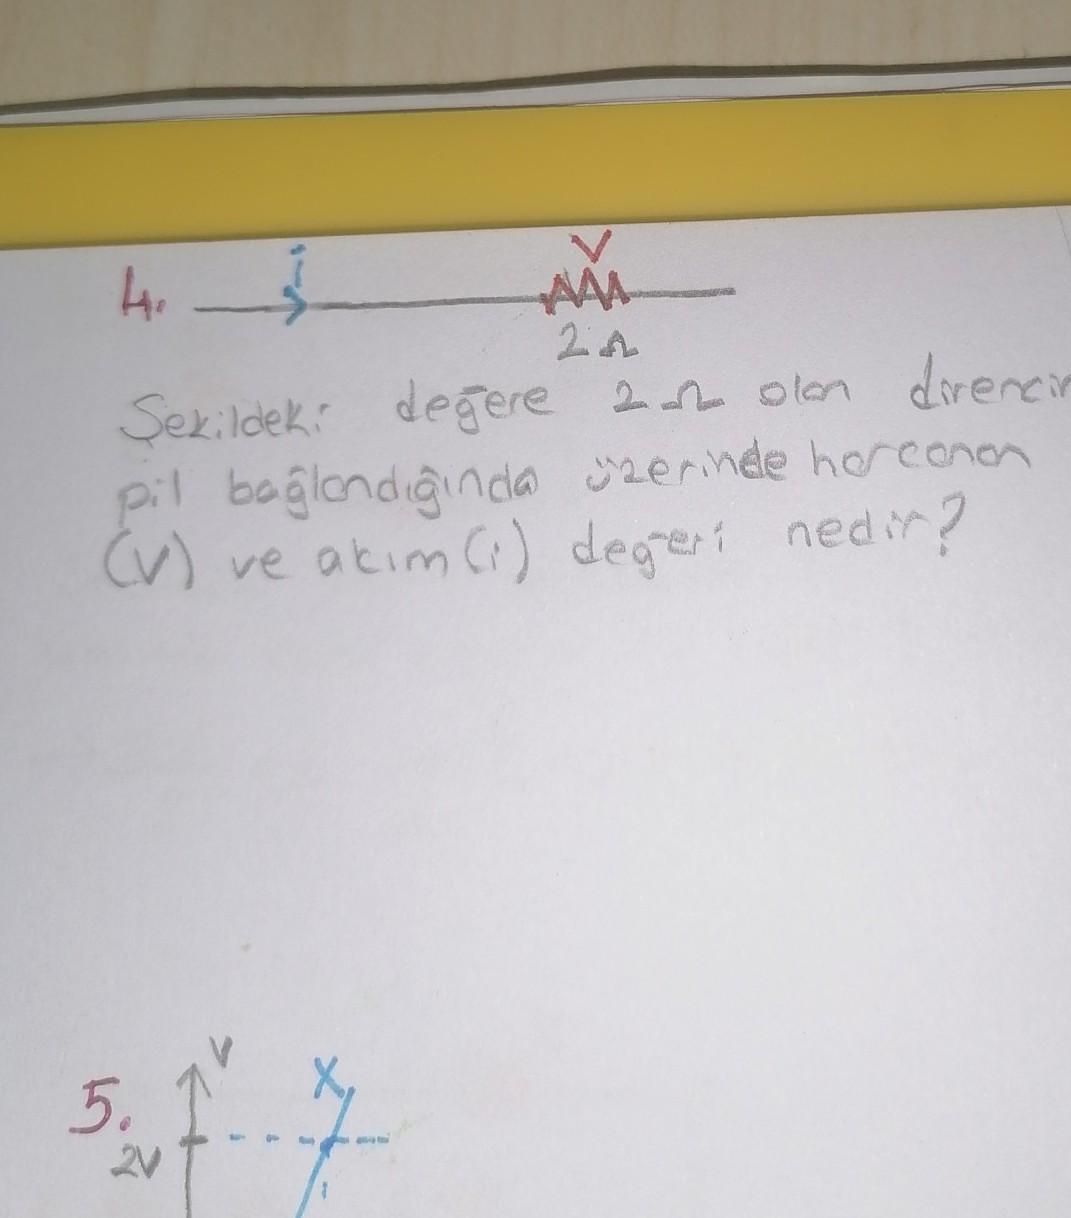 4. i V
2Ω
Şekildeki değere 2Ω olan direncin
pil bağlandığında üzerinde harcanan
(V) ve akım (i) değeri nedir?
5. V X
2V